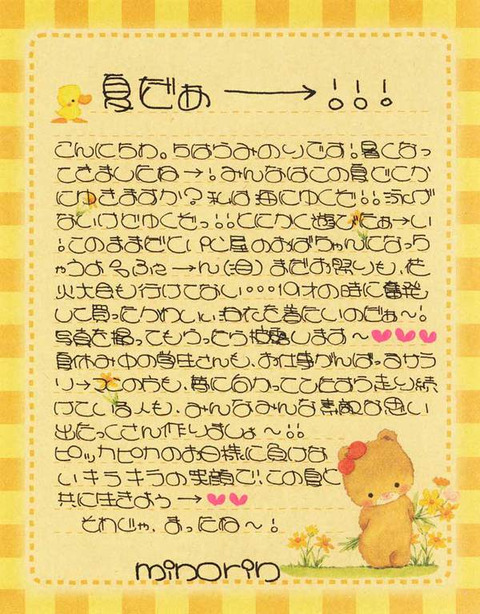 夏だぁ→!!!
こんにちわ。ちはらみのりです!暑くなっ
てきましたね→!みんなはこの夏どこか
にゆきますか?私は海にゆくぞ!!泳げ
ないけどゆくぞっ!!とにかく遊びたぁ→い
!このままだとPC屋のおばちゃんになっち
ゃうよぉふぇ→ん(泣)まだお祭りも、花
火大会も行けてない・・・19才の時に奮発
して買ったかわいい ゆかたを着たいのだぁ〜!
写真を撮ってもらったら披露します〜♥♥♥
夏休み中の学生さんも、お仕事がんばるサラ
リ→マンの方も、夢に向かってひたすら走り続
けている人も、みんなみんな素敵な思い
出たっくさん作りましょ〜!!
ピッカピカのお日様に負けな
いキラキラの笑顔で、この夏と
共に生きよぅ→♥♥
それじゃ、まったね〜!
minorin